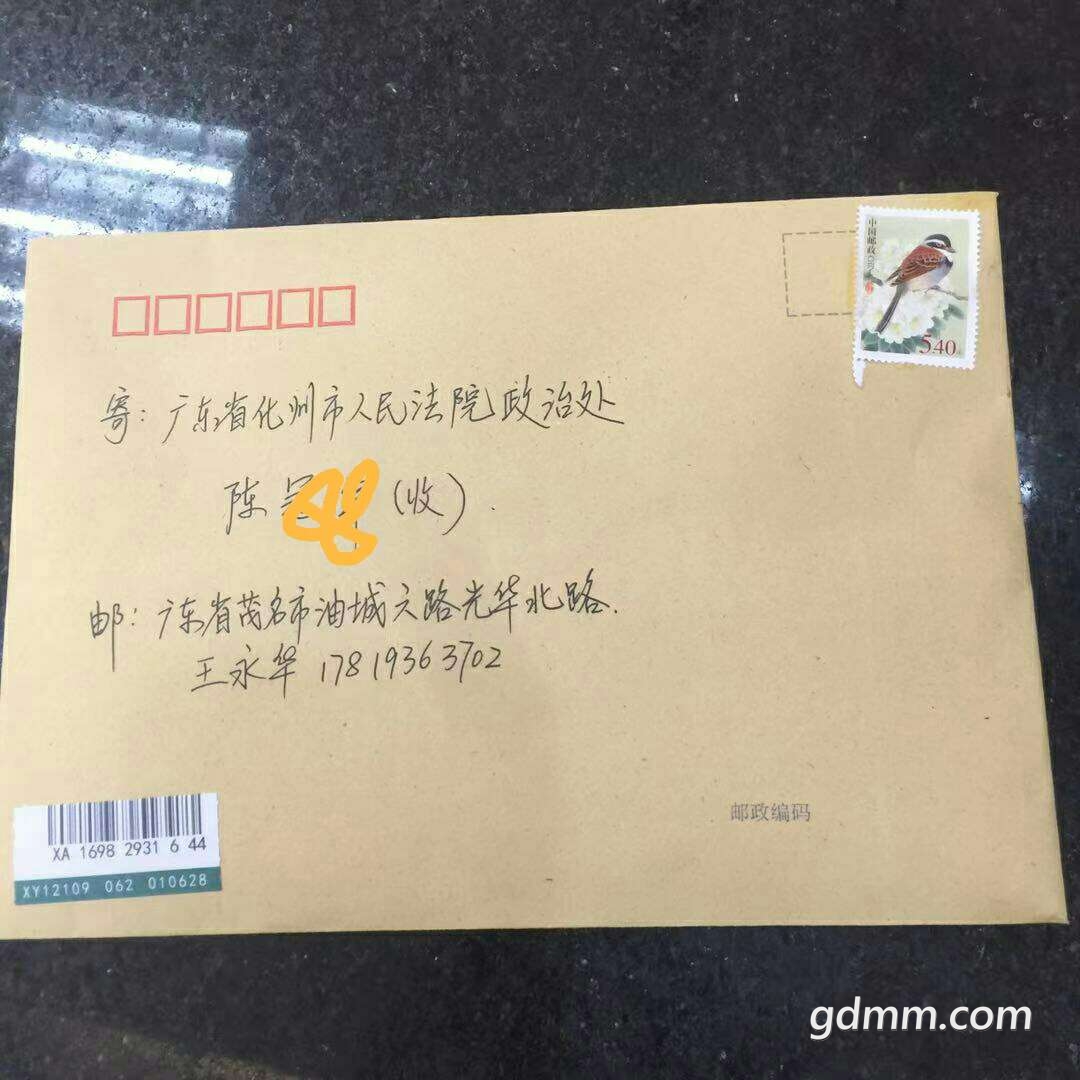 中国邮政
5.40
寄：广东省化州市人民法院政治处
陈（收）.
邮：广东省茂名市油城六路光华北路.
王永华 17819363702
XA 1698 2931 6 44
XY12109 062 010628
邮政编码
gdmm.com